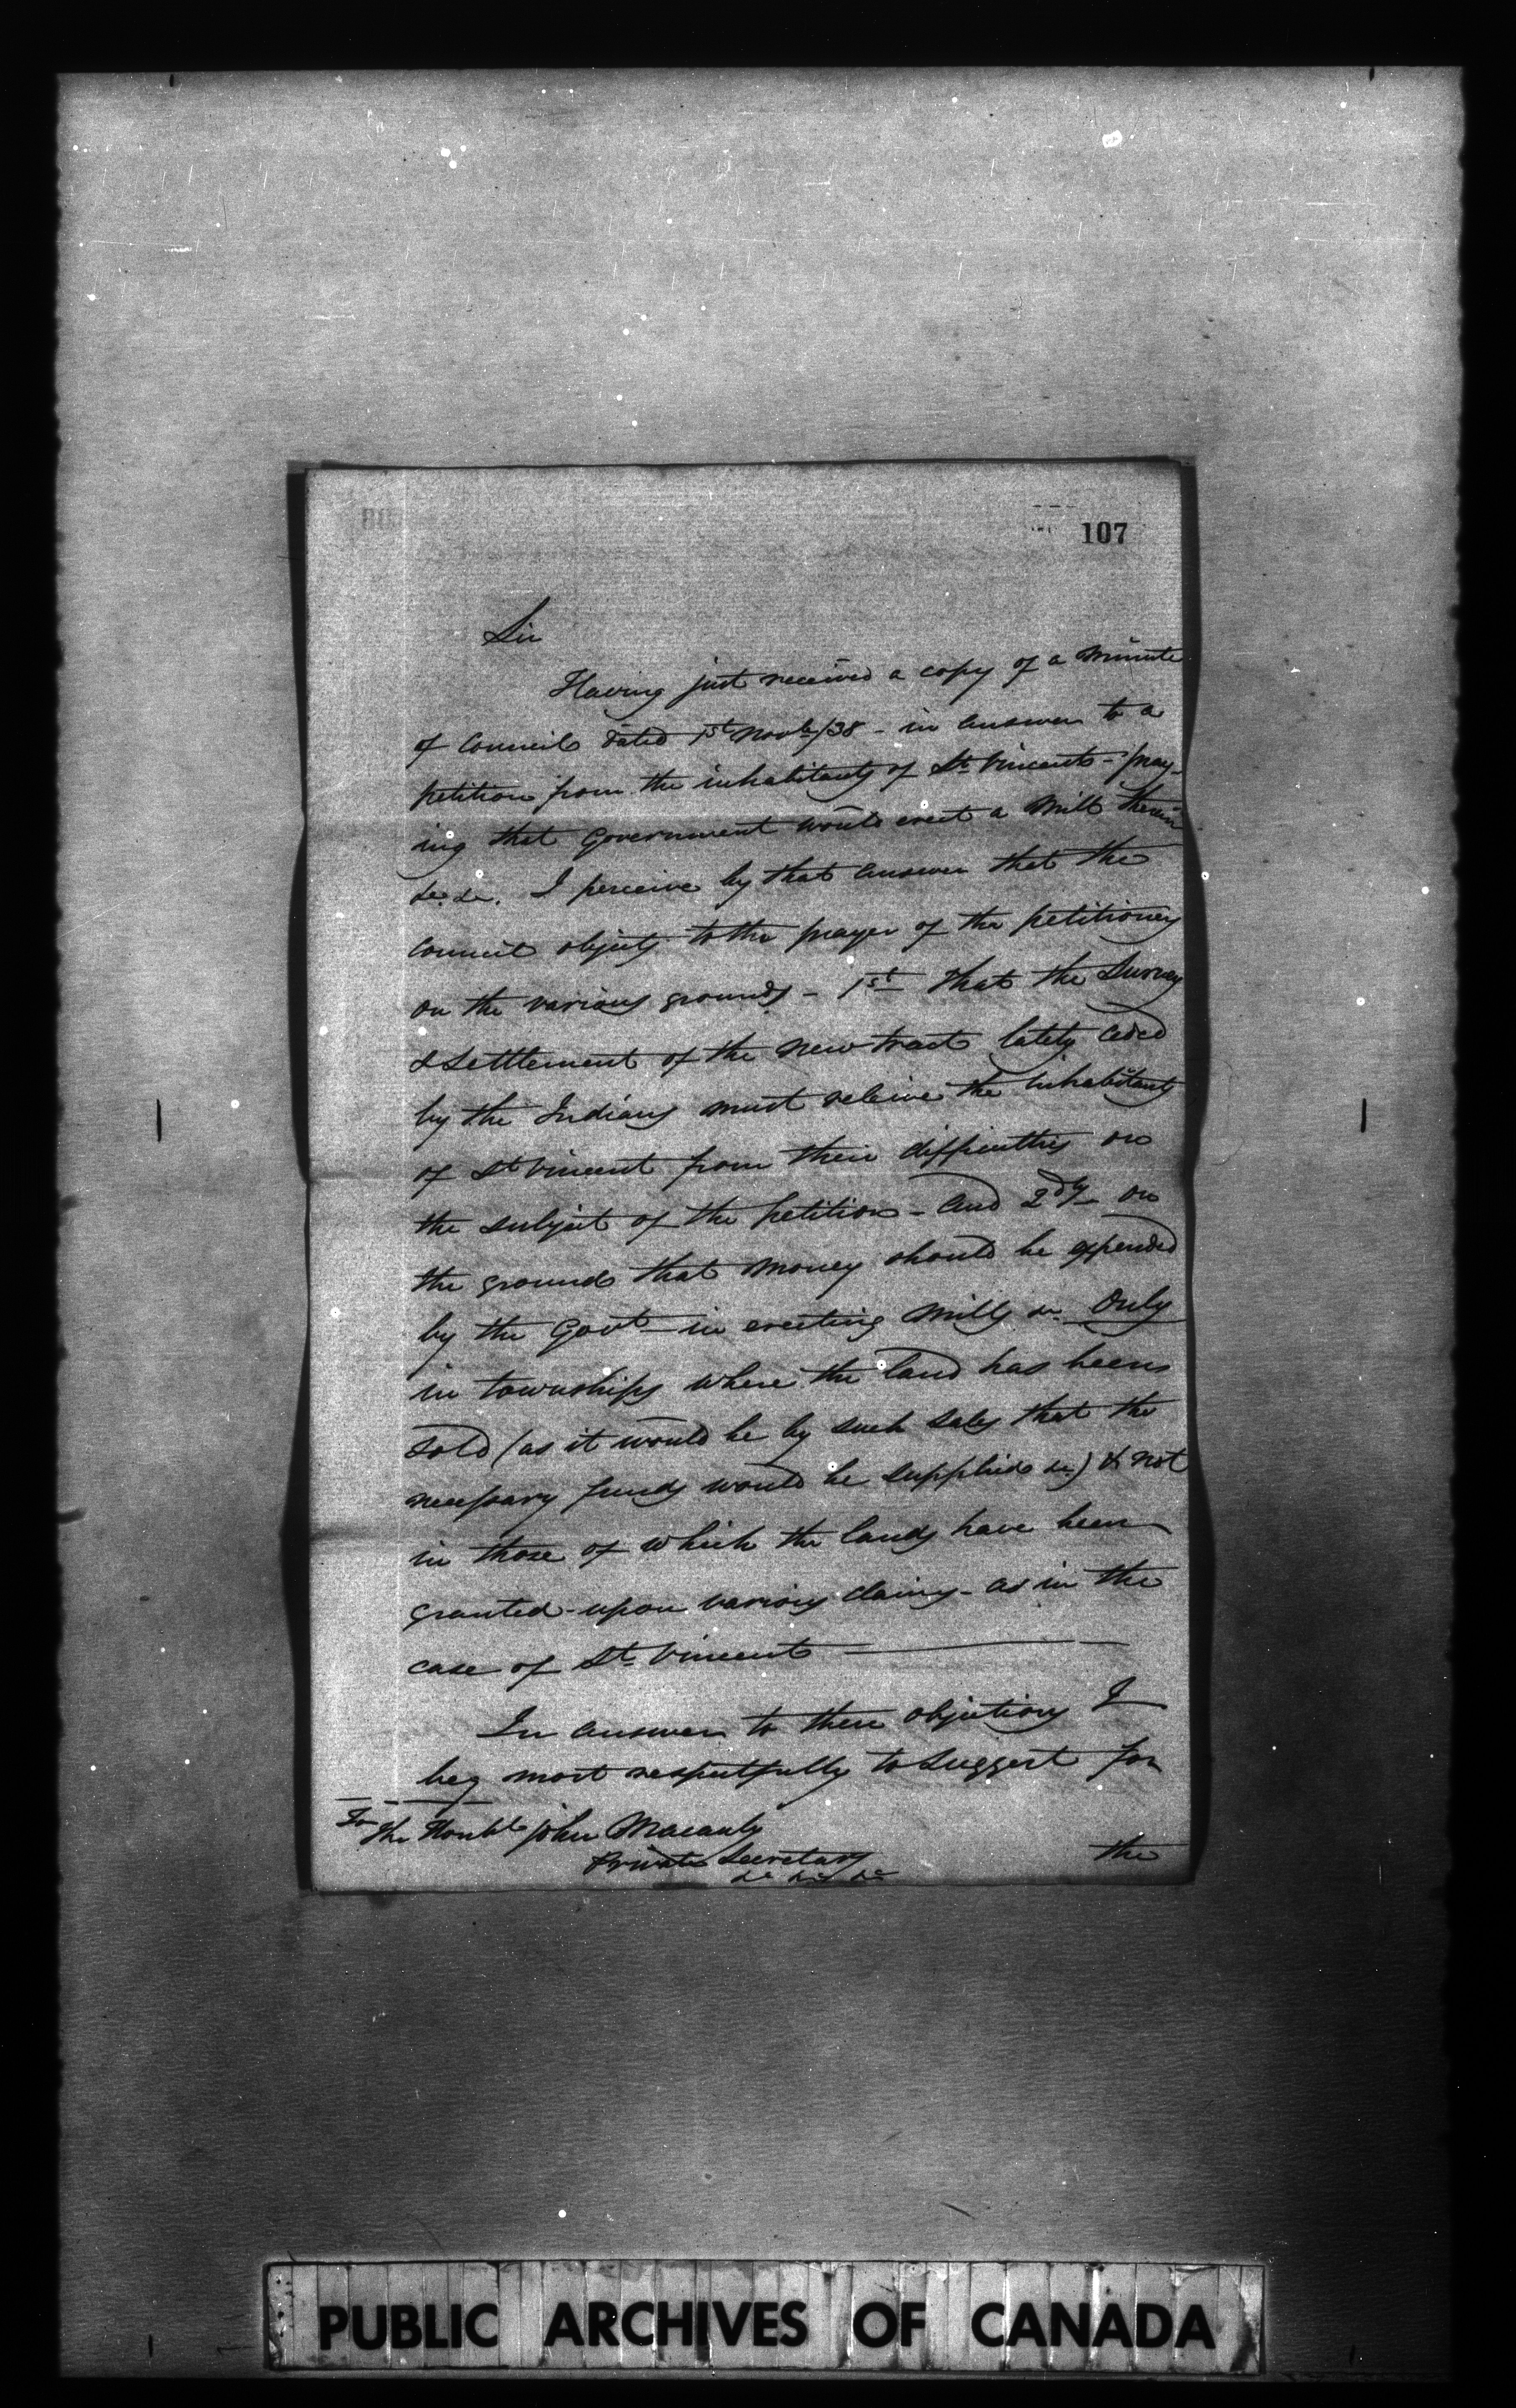 107
Sir
Having just received a copy of a Minute
of Council dated 1st Novbr/38 - in answer to a
petition from the inhabitants of St Vincent - pray-
ing that Government would erect a Mill therein
&c. &c. I perceive by that answer that the
Council objects to the prayer of the petitioners
on the various grounds - 1st That the Survey
& Settlement of the new tract lately ceded
by the Indians must relieve the inhabitants
of St Vincent from their difficulties on
the subject of the petition - and 2dly on
the ground that money should be expended
by the Govt - in erecting Mills &c. Only
in townships where the land has been
sold (as it would be by such sales that the
necessary funds would be supplied &c) & not
in those of which the lands have been
granted - upon various claims - as in the
case of St Vincent
In answer to these objections I
beg most respectfully to suggest for
To The Honble John Macauly
Private Secretary
&c &c &c
the
PUBLIC ARCHIVES OF CANADA